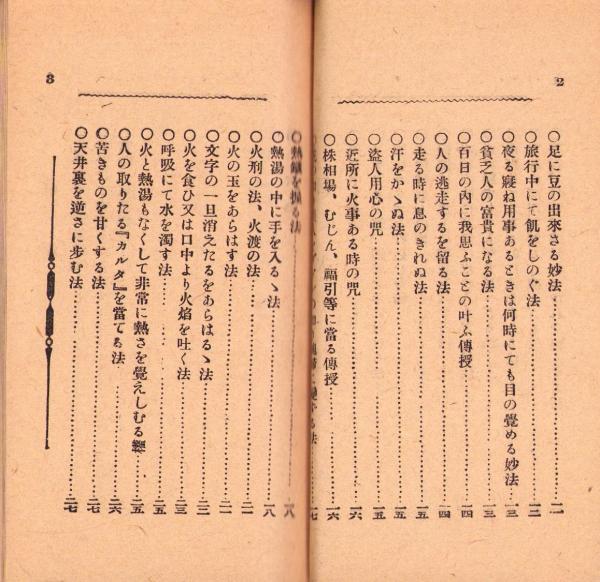 2
○足に豆の出來ざる妙法………一一
○旅行中にて飢をしのぐ法………一二
○夜る寢ね用事あるときは何時にても目の覺める妙法………一三
○貧乏人の富貴になる法………一三
○百日の內に我思ふことの叶ふ傳授………一四
○人の逃走するを留る法………一四
○走る時に息のきれぬ法………一五
○汗をかゝぬ法………一五
○盜人用心の咒………一五
○近所に火事ある時の咒………一六
○株相場、むじん、福引等に當る傳授………一六
3
○熱湯の中に手を入るゝ法………一八
○火刑の法、火渡の法………二〇
○火の玉をあらはす法………二一
○文字の一旦消えたるをあらはるゝ法………二三
○火を食ひ又は口中より火焰を吐く法………二三
○呼吸にて水を濁す法………二五
○火と熱湯もなくして非常に熱さを覺えしむる………二五
○人の取りたる『カルタ』を當てる法………二六
○苦きものを甘くする法………二七
○天井裏を逆さに步む法………二七